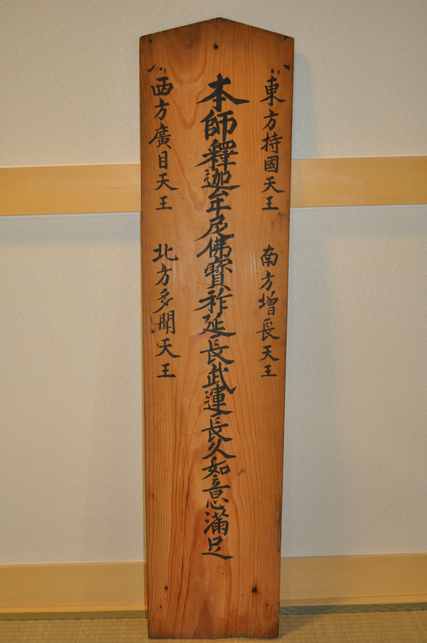 東方持國天王　南方増長天王
本師釋迦牟尼佛寳祚延長武運長久如意満足
西方廣目天王　北方多聞天王